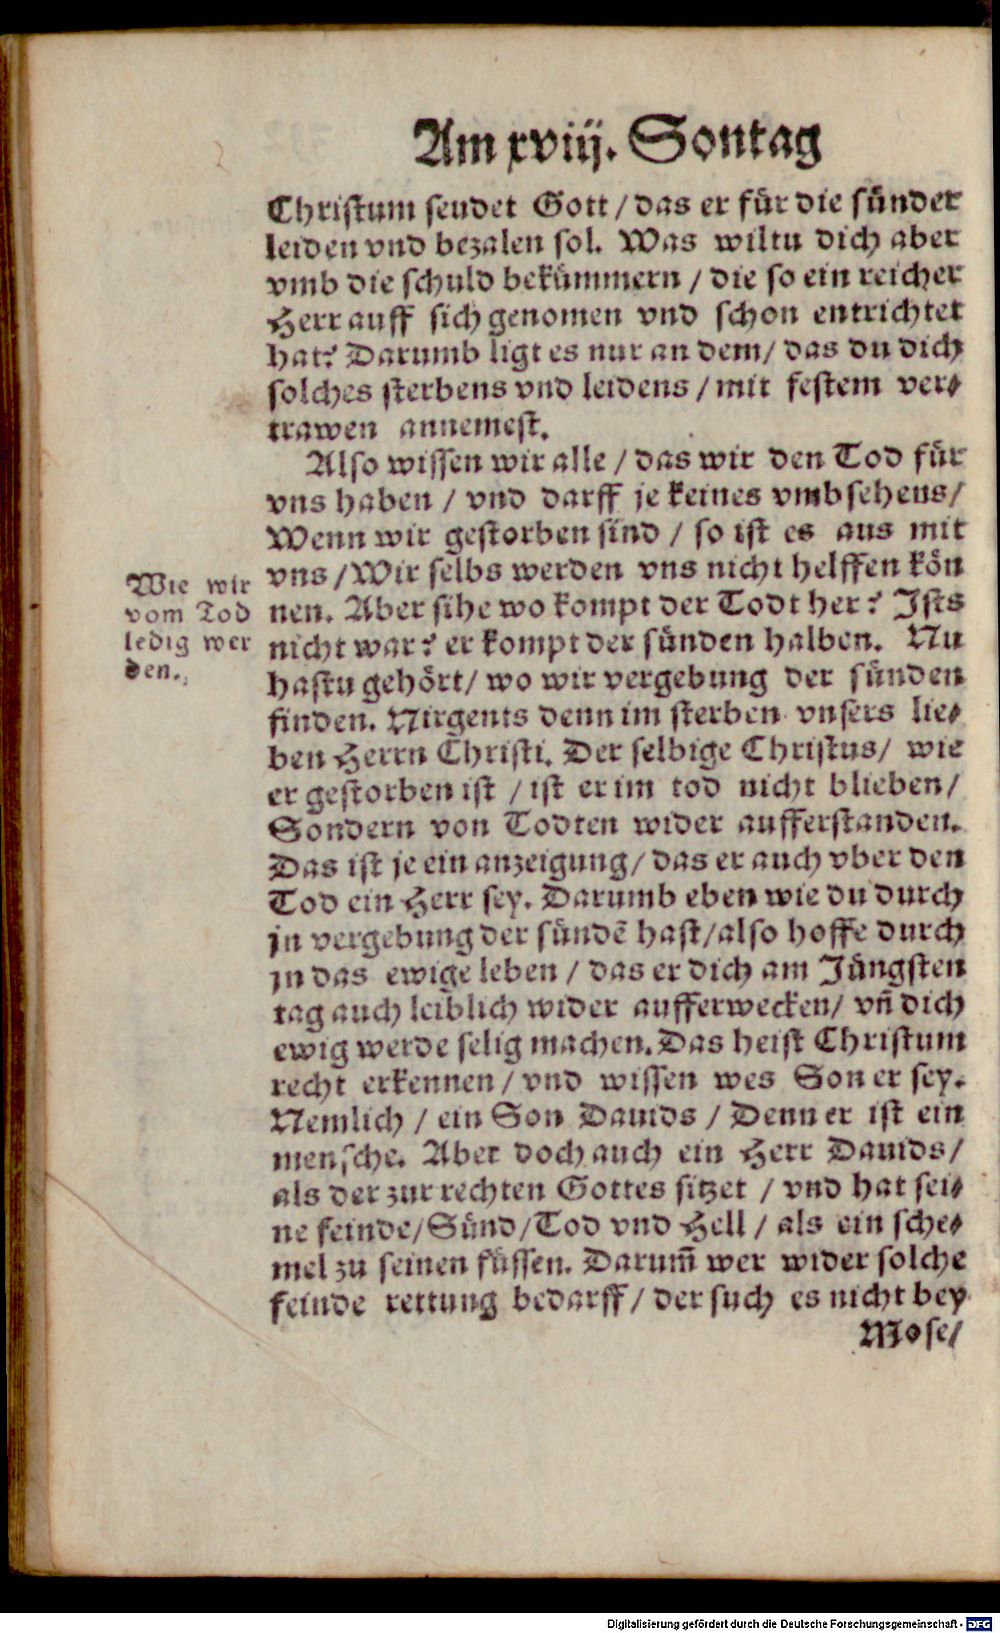 Am xviij. Sontag
Christum sendet Gott / das er für die sünder
leiden vnd bezalen sol. Was wiltu dich aber
vmb die schuld bekümmern / die so ein reicher
Herr auff sich genomen vnd schon entrichtet
hat? Darumb ligt es nur an dem / das du dich
solches sterbens vnd leidens / mit festem ver⸗
trawen annemest.
Also wissen wir alle / das wir den Tod für
vns haben / vnd darff je keines vmbsehens /
Wenn wir gestorben sind / so ist es aus mit
vns / Wir selbs werden vns nicht helffen kön
nen. Aber sihe wo kompt der Todt her? Ists
nicht war? er kompt der sünden halben. Nu
hastu gehört / wo wir vergebung der sünden
finden. Nirgents denn im sterben vnsers lie⸗
ben Herrn Christi. Der selbige Christus / wie
er gestorben ist / ist er im tod nicht blieben /
Sondern von Todten wider aufferstanden.
Das ist je ein anzeigung / das er auch vber den
Tod ein Herr sey. Darumb eben wie du durch
jn vergebung der sündē hast / also hoffe durch
jn das ewige leben / das er dich am Jüngsten
tag auch leiblich wider aufferwecken / vn̄ dich
ewig werde selig machen. Das heist Christum
recht erkennen / vnd wissen wes Son er sey.
Nemlich / ein Son Dauids / Denn er ist ein
mensche. Aber doch auch ein Herr Dauids /
als der zur rechten Gottes sitzet / vnd hat sei⸗
ne feinde / Sünd / Tod vnd Hell / als ein sche⸗
mel zu seinen füssen. Darum̄ wer wider solche
feinde rettung bedarff / der such es nicht bey
Mose /
Wie wir
vom Tod
ledig wer
den.
Digitalisierung gefördert durch die Deutsche Forschungsgemeinschaft - DFG